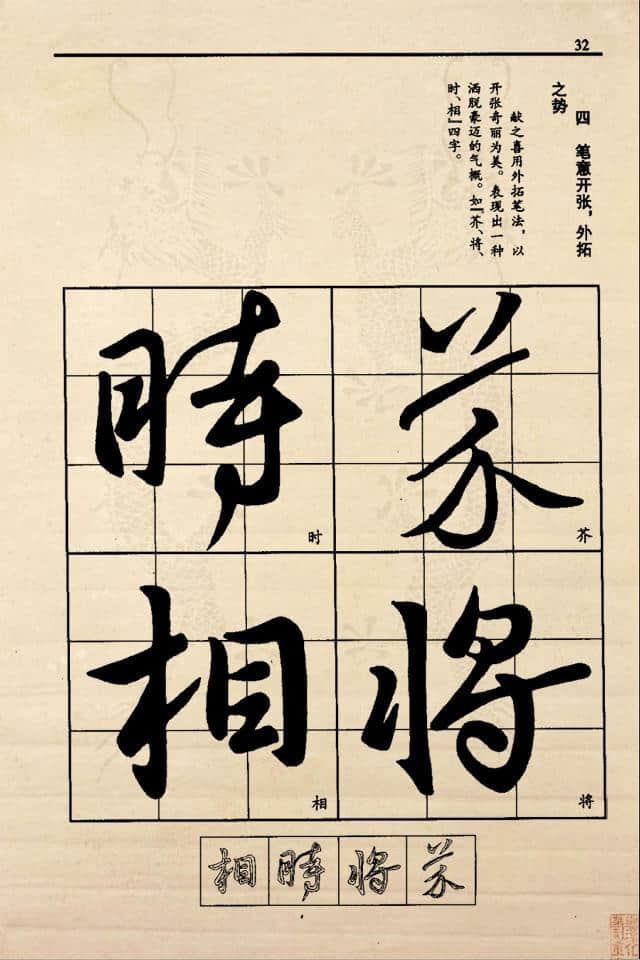 32
四　笔意开张，外拓
之势
献之喜用外拓笔法，以
开张奇丽为美。表现出一种
洒脱豪迈的气概。如『芥、将、
时、相』四字。
芥
芥
将
将
時
时
相
相
相時将芥